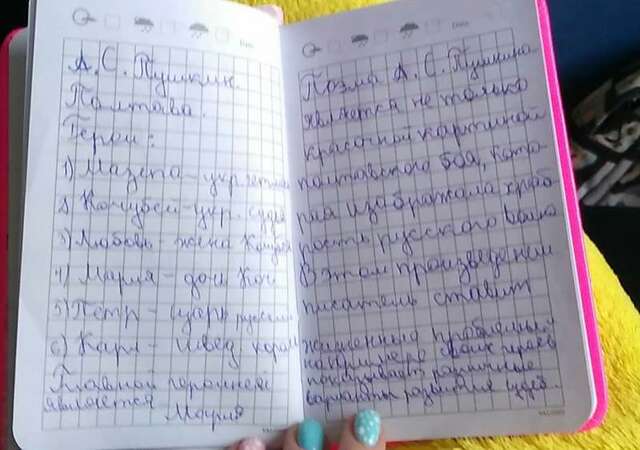 А. С. Пушкин.
Полтава.
Герои:
1) Мазепа - укр. гетман
2) Кочубей - укр. судья
3) Любовь - жена Кочубея
4) Мария - дочь Коч
5) Пётр - царь русский
6) Карл - швед. король
Главной героиней
является Мария
Поэма А. С. Пушкина
является не только
красочной картиной
полтавского боя, кото-
рая изображала храб-
рость русского
В этом произведении
писатель ставит
жизненные проблемы
на примере своих героев
показывает различные
варианты развития судеб.